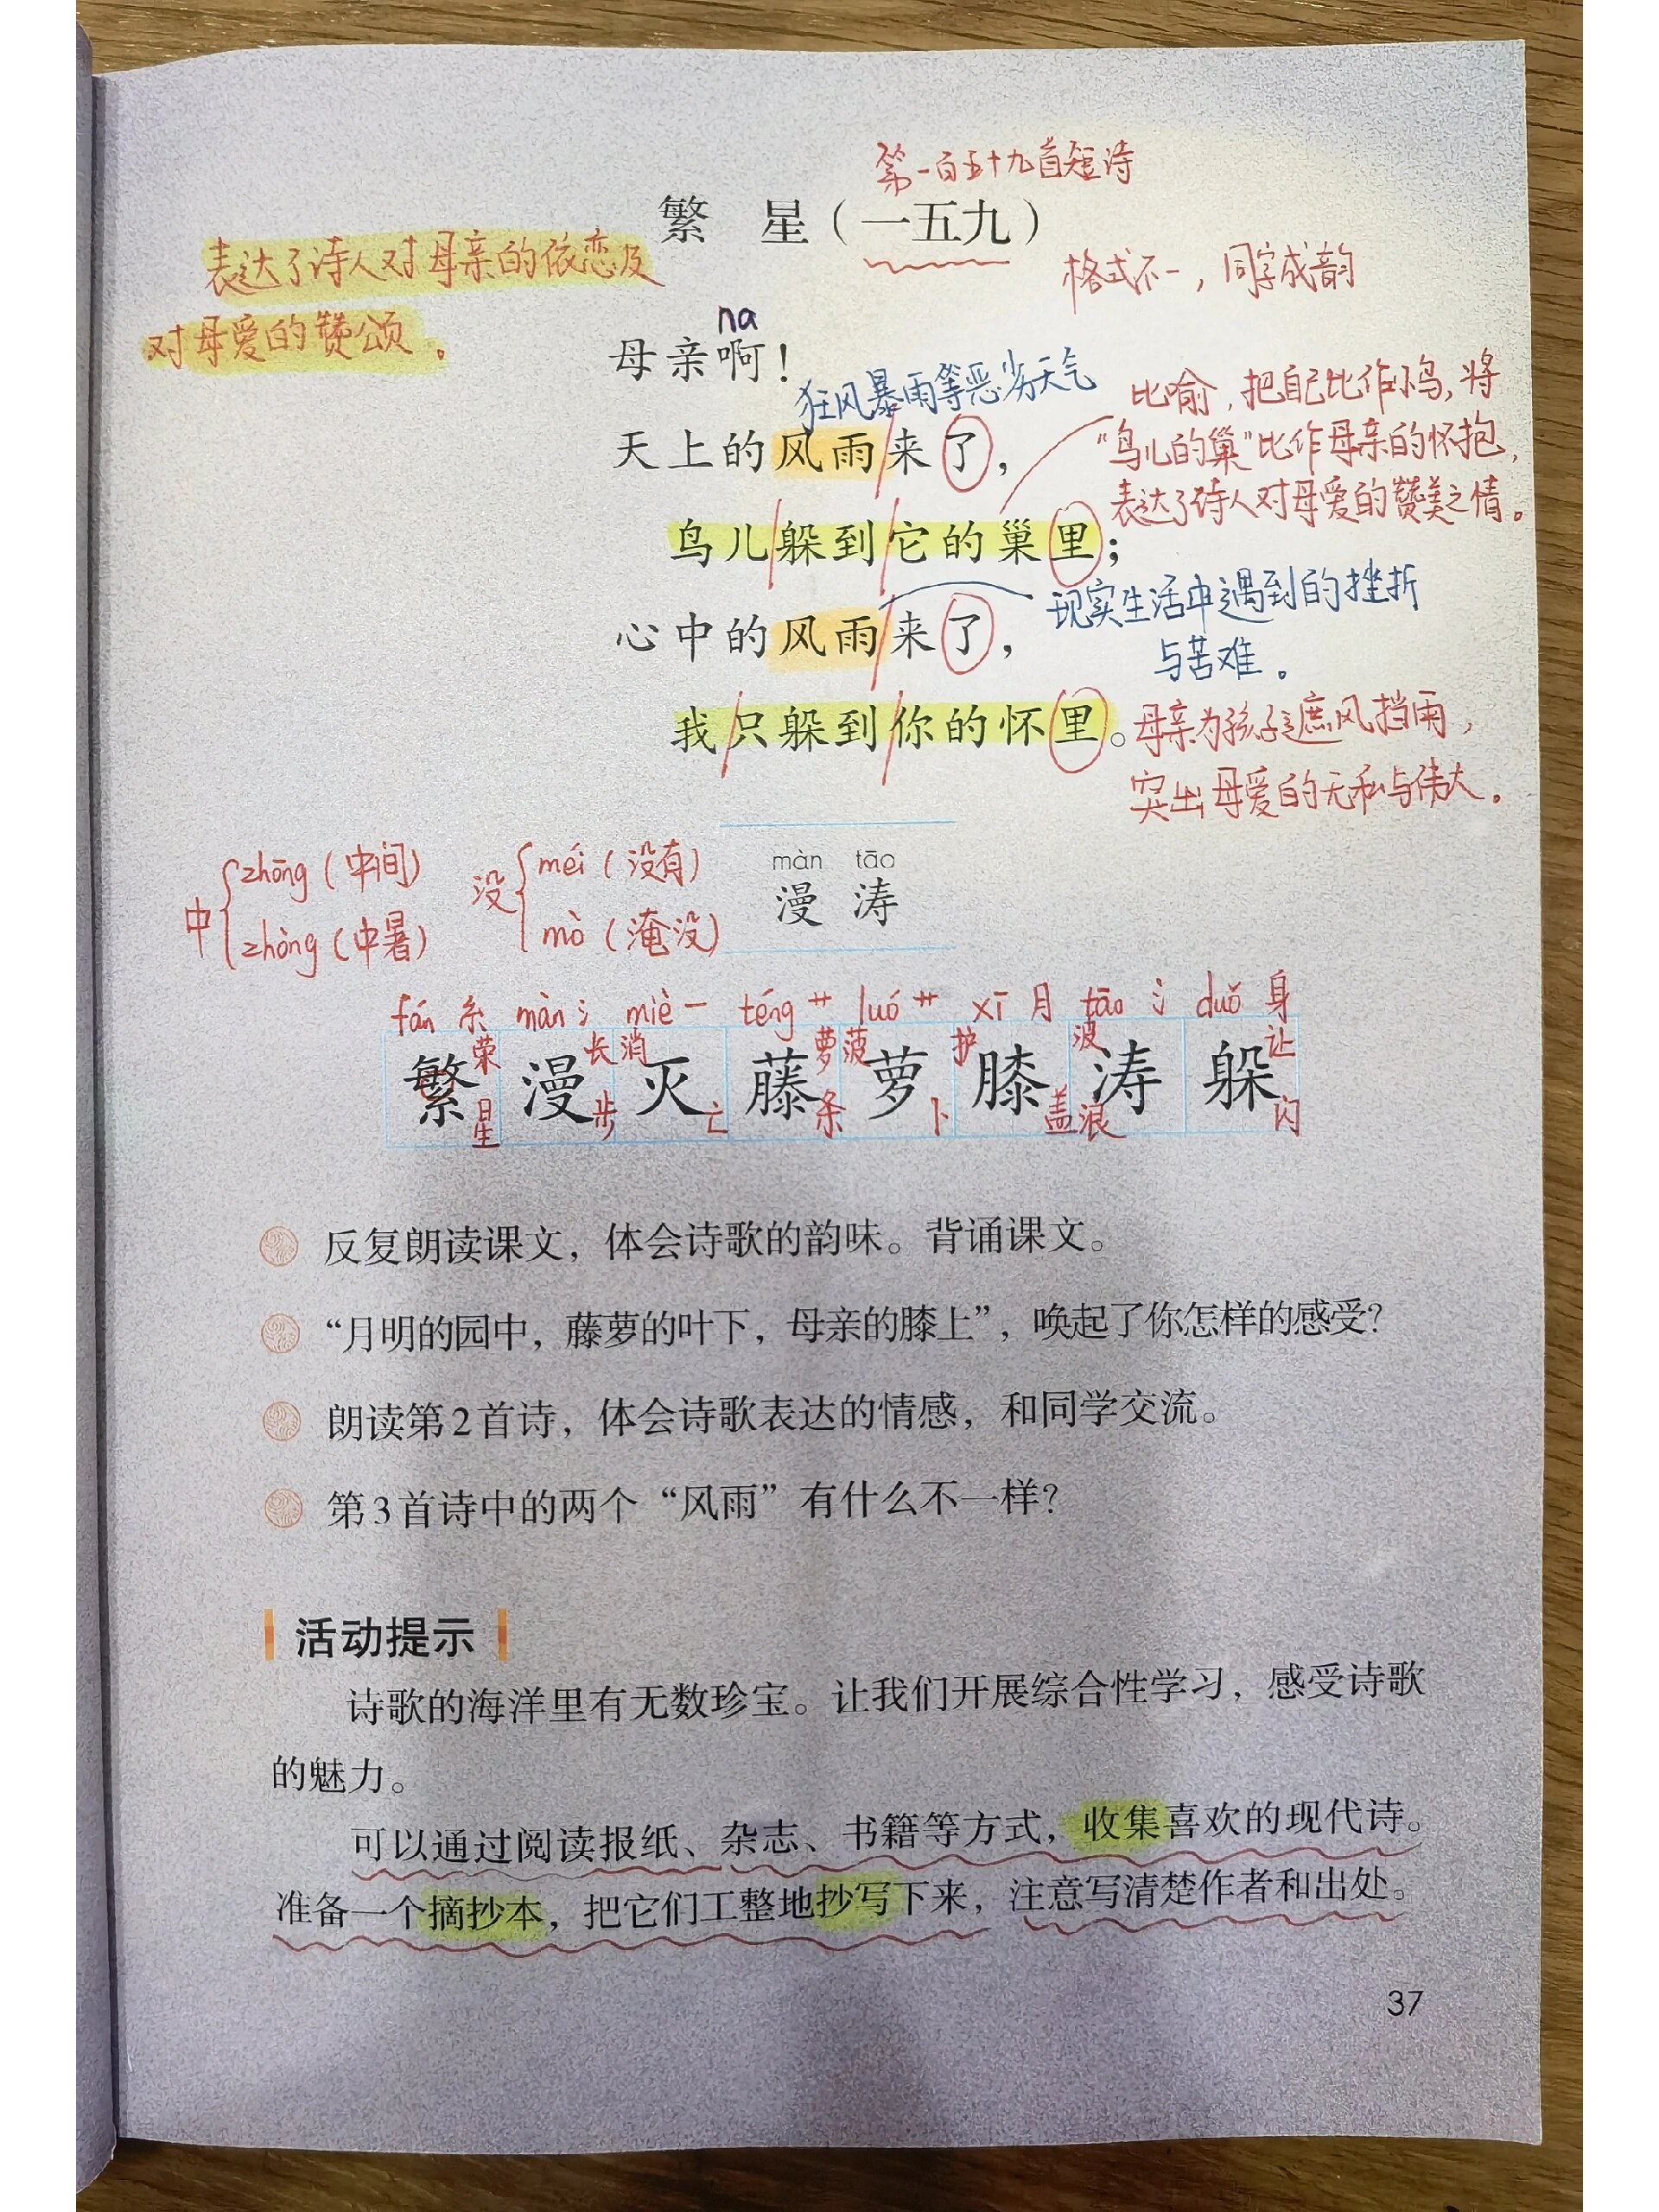 第一百五十九首短诗
繁 星（一五九）
表达了诗人对母亲的依恋及
对母爱的赞颂。
格式不一，同字成韵
na
母亲啊！
狂风暴雨等恶劣天气
天上的风雨来了，
比喻，把自己比作小鸟，将
“鸟儿的巢”比作母亲的怀抱，
表达了诗人对母爱的赞美之情。
鸟儿躲到它的巢里；
心中的风雨来了，
现实生活中遇到的挫折
与苦难。
我只躲到你的怀里。
母亲为孩子遮风挡雨，
突出母爱的无私与伟大。
中 zhōng（中间）
zhòng（中暑）
没 méi（没有）
mò（淹没）
màn tāo
漫 涛
fán 糸 màn 氵 miè 一 téng 艹 luó 艹 xī 月 tāo 氵 duǒ 身
荣 长 消 萝 菠 护 波 让
繁 漫 灭 藤 萝 膝 涛 躲
星 步 亡 条 卜 盖 浪 闪
反复朗读课文，体会诗歌的韵味。背诵课文。
“月明的园中，藤萝的叶下，母亲的膝上”，唤起了你怎样的感受？
朗读第2首诗，体会诗歌表达的情感，和同学交流。
第3首诗中的两个“风雨”有什么不一样？
活动提示
诗歌的海洋里有无数珍宝。让我们开展综合性学习，感受诗歌
的魅力。
可以通过阅读报纸、杂志、书籍等方式，收集喜欢的现代诗。
准备一个摘抄本，把它们工整地抄写下来，注意写清楚作者和出处。
37